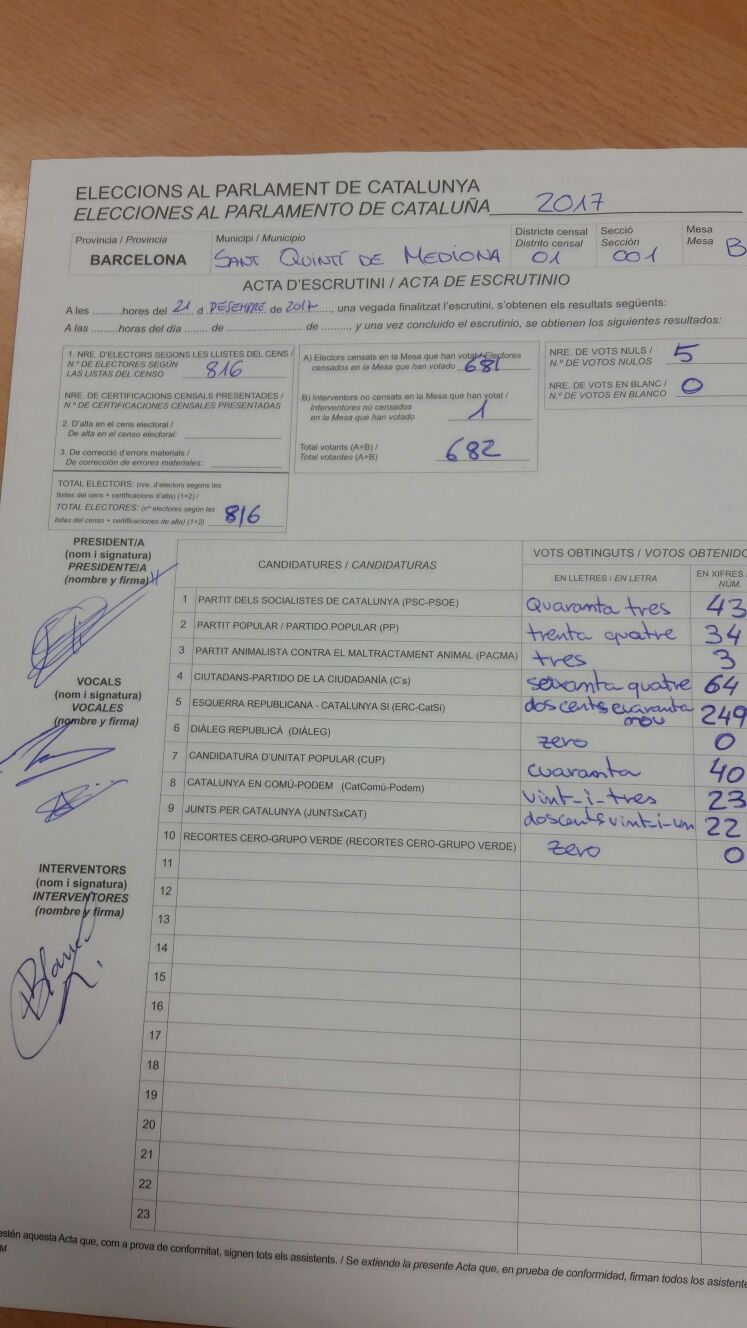 ELECCIONS AL PARLAMENT DE CATALUNYA
ELECCIONES AL PARLAMENTO DE CATALUÑA 2017
Província / Provincia
BARCELONA
Municipi / Municipio
SANT QUINTÍ DE MEDIONA
Districte censal
Distrito censal
01
Secció
Sección
001
Mesa
Mesa
B
ACTA D'ESCRUTINI / ACTA DE ESCRUTINIO
A les ..........hores del 21 d DESEMBRE de 2017, una vegada finalitzat l'escrutini, s'obtenen els resultats següents:
A las .........horas del día ....... de ........................... de ........, y una vez concluido el escrutinio, se obtienen los siguientes resultados:
1. NRE. D'ELECTORS SEGONS LES LLISTES DEL CENS /
N.º DE ELECTORES SEGÚN
LAS LISTAS DEL CENSO 816
NRE. DE CERTIFICACIONS CENSALS PRESENTADES /
N.º DE CERTIFICACIONES CENSALES PRESENTADAS
2. D'alta en el cens electoral /
De alta en el censo electoral:
3. De correcció d'errors materials /
De corrección de errores materiales:
TOTAL ELECTORS: (nre. d'electors segons les
llistes del cens + certificacions d'alta) (1+2) /
TOTAL ELECTORES: (nº electores según las
listas del censo + certificaciones de alta) (1+2) 816
A) Electors censats en la Mesa que han votat / Electores
censados en la Mesa que han votado 681
B) Interventors no censats en la Mesa que han votat /
Interventores no censados
en la Mesa que han votado 1
Total votants (A+B) /
Total votantes (A+B) 682
NRE. DE VOTS NULS /
N.º DE VOTOS NULOS 5
NRE. DE VOTS EN BLANC /
N.º DE VOTOS EN BLANCO 0
PRESIDENT/A
(nom i signatura)
PRESIDENTE/A
(nombre y firma)
VOCALS
(nom i signatura)
VOCALES
(nombre y firma)
INTERVENTORS
(nom i signatura)
INTERVENTORES
(nombre y firma)
CANDIDATURES / CANDIDATURAS
VOTS OBTINGUTS / VOTOS OBTENIDO
EN LLETRES / EN LETRA
EN XIFRES
NÚM.
1 PARTIT DELS SOCIALISTES DE CATALUNYA (PSC-PSOE) Quaranta tres 43
2 PARTIT POPULAR / PARTIDO POPULAR (PP) trenta quatre 34
3 PARTIT ANIMALISTA CONTRA EL MALTRACTAMENT ANIMAL (PACMA) tres 3
4 CIUTADANS-PARTIDO DE LA CIUDADANÍA (C's) seixanta quatre 64
5 ESQUERRA REPUBLICANA - CATALUNYA SI (ERC-CatSí) dos cents cuaranta nou 249
6 DIÀLEG REPUBLICÀ (DIÀLEG) zero 0
7 CANDIDATURA D'UNITAT POPULAR (CUP) cuaranta 40
8 CATALUNYA EN COMÚ-PODEM (CatComú-Podem) vint-i-tres 23
9 JUNTS PER CATALUNYA (JUNTSxCAT) doscents vint-i-un 22
10 RECORTES CERO-GRUPO VERDE (RECORTES CERO-GRUPO VERDE) zero 0
11
12
13
14
15
16
17
18
19
20
21
22
23
estén aquesta Acta que, com a prova de conformitat, signen tots els assistents. / Se extiende la presente Acta que, en prueba de conformidad, firman todos los asistente